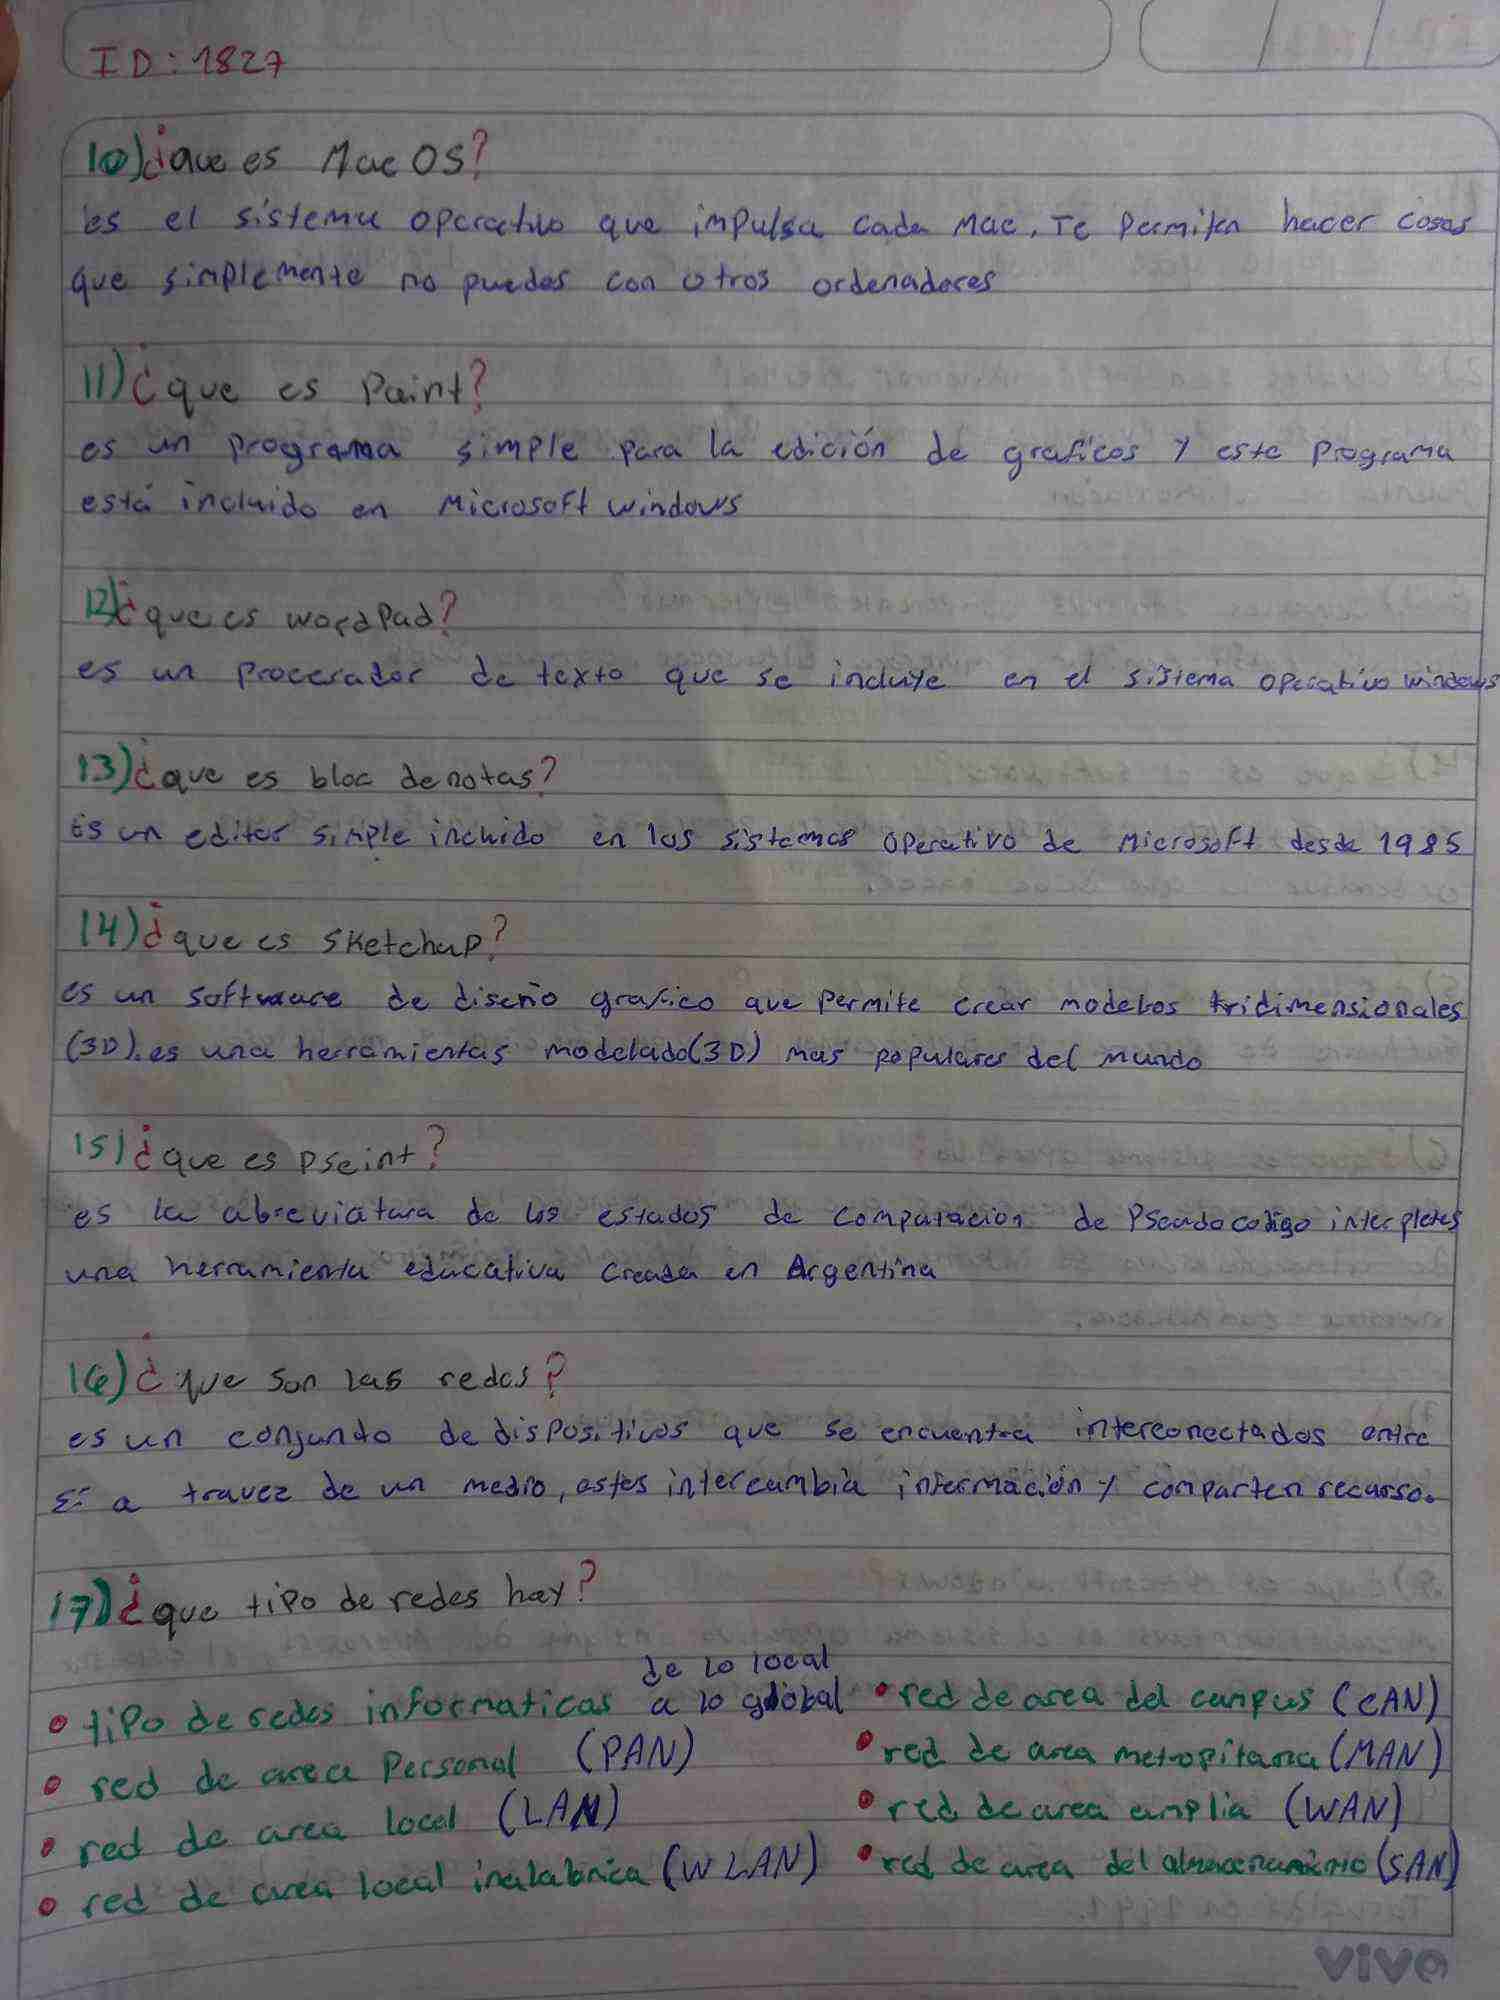 ID: 1827
10) ¿que es Mac OS?
es el sistema operativo que impulsa cada Mac, Te Permiten hacer cosas
que simplemente no puedes con otros ordenadores
11) ¿que es Paint?
es un programa simple para la edición de graficos y este Programa
está incluido en Microsoft windows
12) ¿que es wordPad?
es un procesador de texto que se incluye en el sistema operativo windows
13) ¿que es bloc de notas?
Es un editor simple incluido en los sistemas operativo de Microsoft desde 1985
14) ¿que es sketchup?
es un software de diseño grafico que Permite crear modelos tridimensionales
(3D).es una herramientas modelado(3D) mas populares del mundo
15) ¿que es pseint?
es la abreviatura de los estados de computacion de Pseudocodigo interpletes
una herramienta educativa creada en Argentina
16) ¿que son las redes?
es un conjundo de dispositivos que se encuentra interconectados entre
si a travez de un medio, estes intercambia información y comparten recurso.
17) ¿que tipo de redes hay?
• tipo de redes informaticas de lo local a lo global
• red de area Personal (PAN)
• red de area local (LAN)
• red de area local inalabrica (WLAN)
• red de area del campus (CAN)
• red de area metropitana (MAN)
• red de area amplia (WAN)
• red de area del almacenamiento (SAN)
vivo